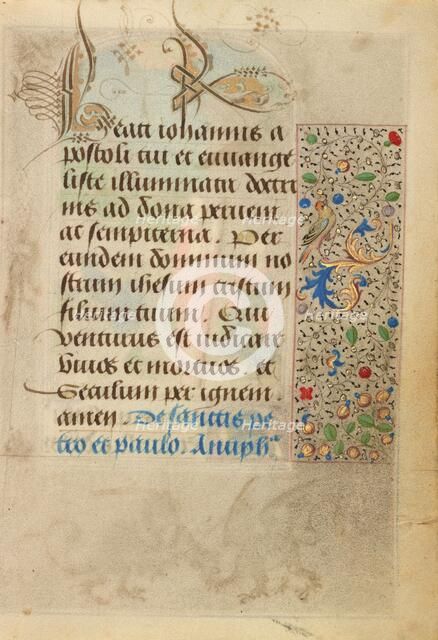 Beati iohannis a
postoli tui et euuange
liste illuminata doctri
nis ad dona perueni
at sempiterna. Per
eundem dominum no
strum ihesum cristum
filium tuum. Qui
venturus est iudicare
viuos et mortuos. et
Seculum per ignem.
amen. De sanctis pe
tro et paulo. Antiph